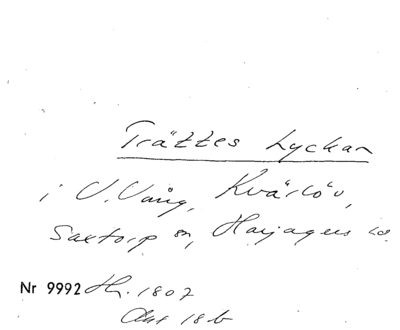 Trättes Lyckan
i V. Vång, Kvärlöv,
Saxtorp sn, Harjagers hd.
Nr 9992 Hr. 1807
Akt 18b